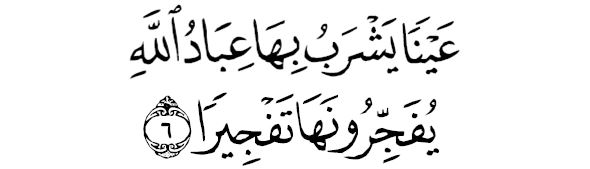 عَيْنًا يَشْرَبُ بِهَا عِبَادُ ٱللَّهِ
يُفَجِّرُونَهَا تَفْجِيرًا ۝٦